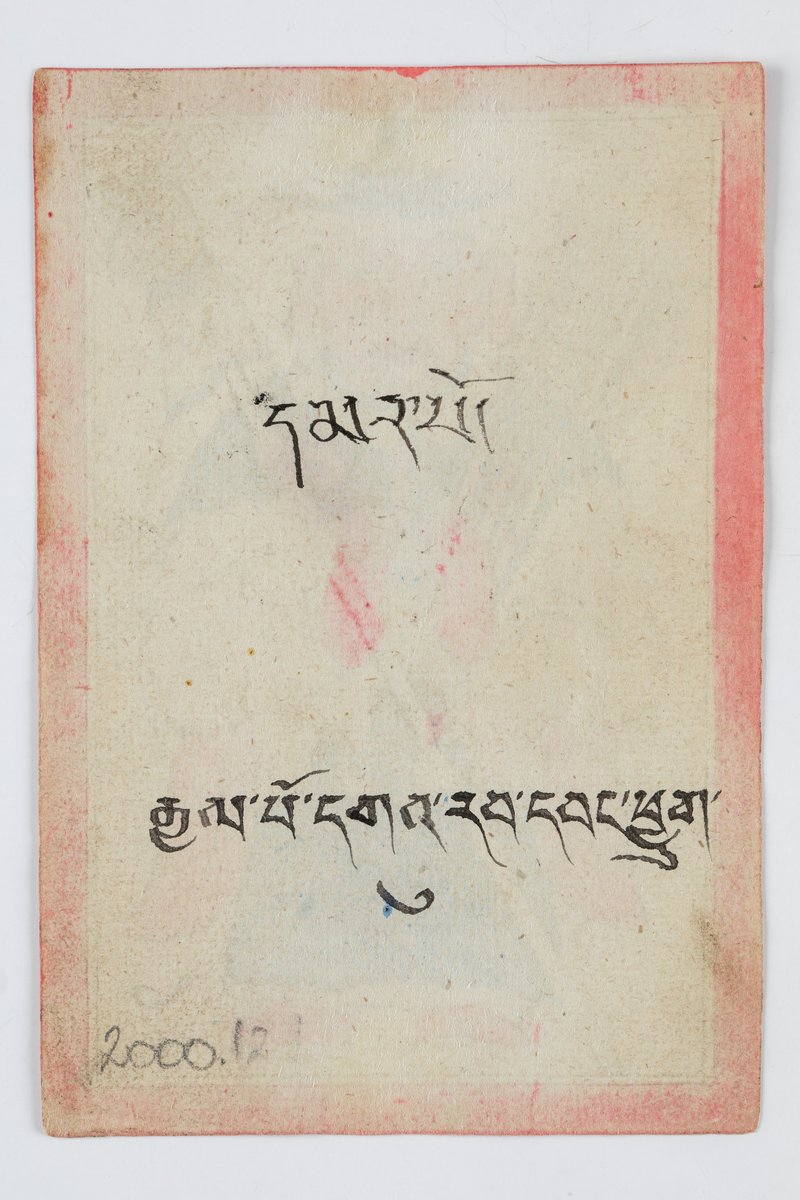 དམར་པོ
རྒྱལ་པོ་དགའ་རབ་དབང་ཕྱུག་
༧
2000.12